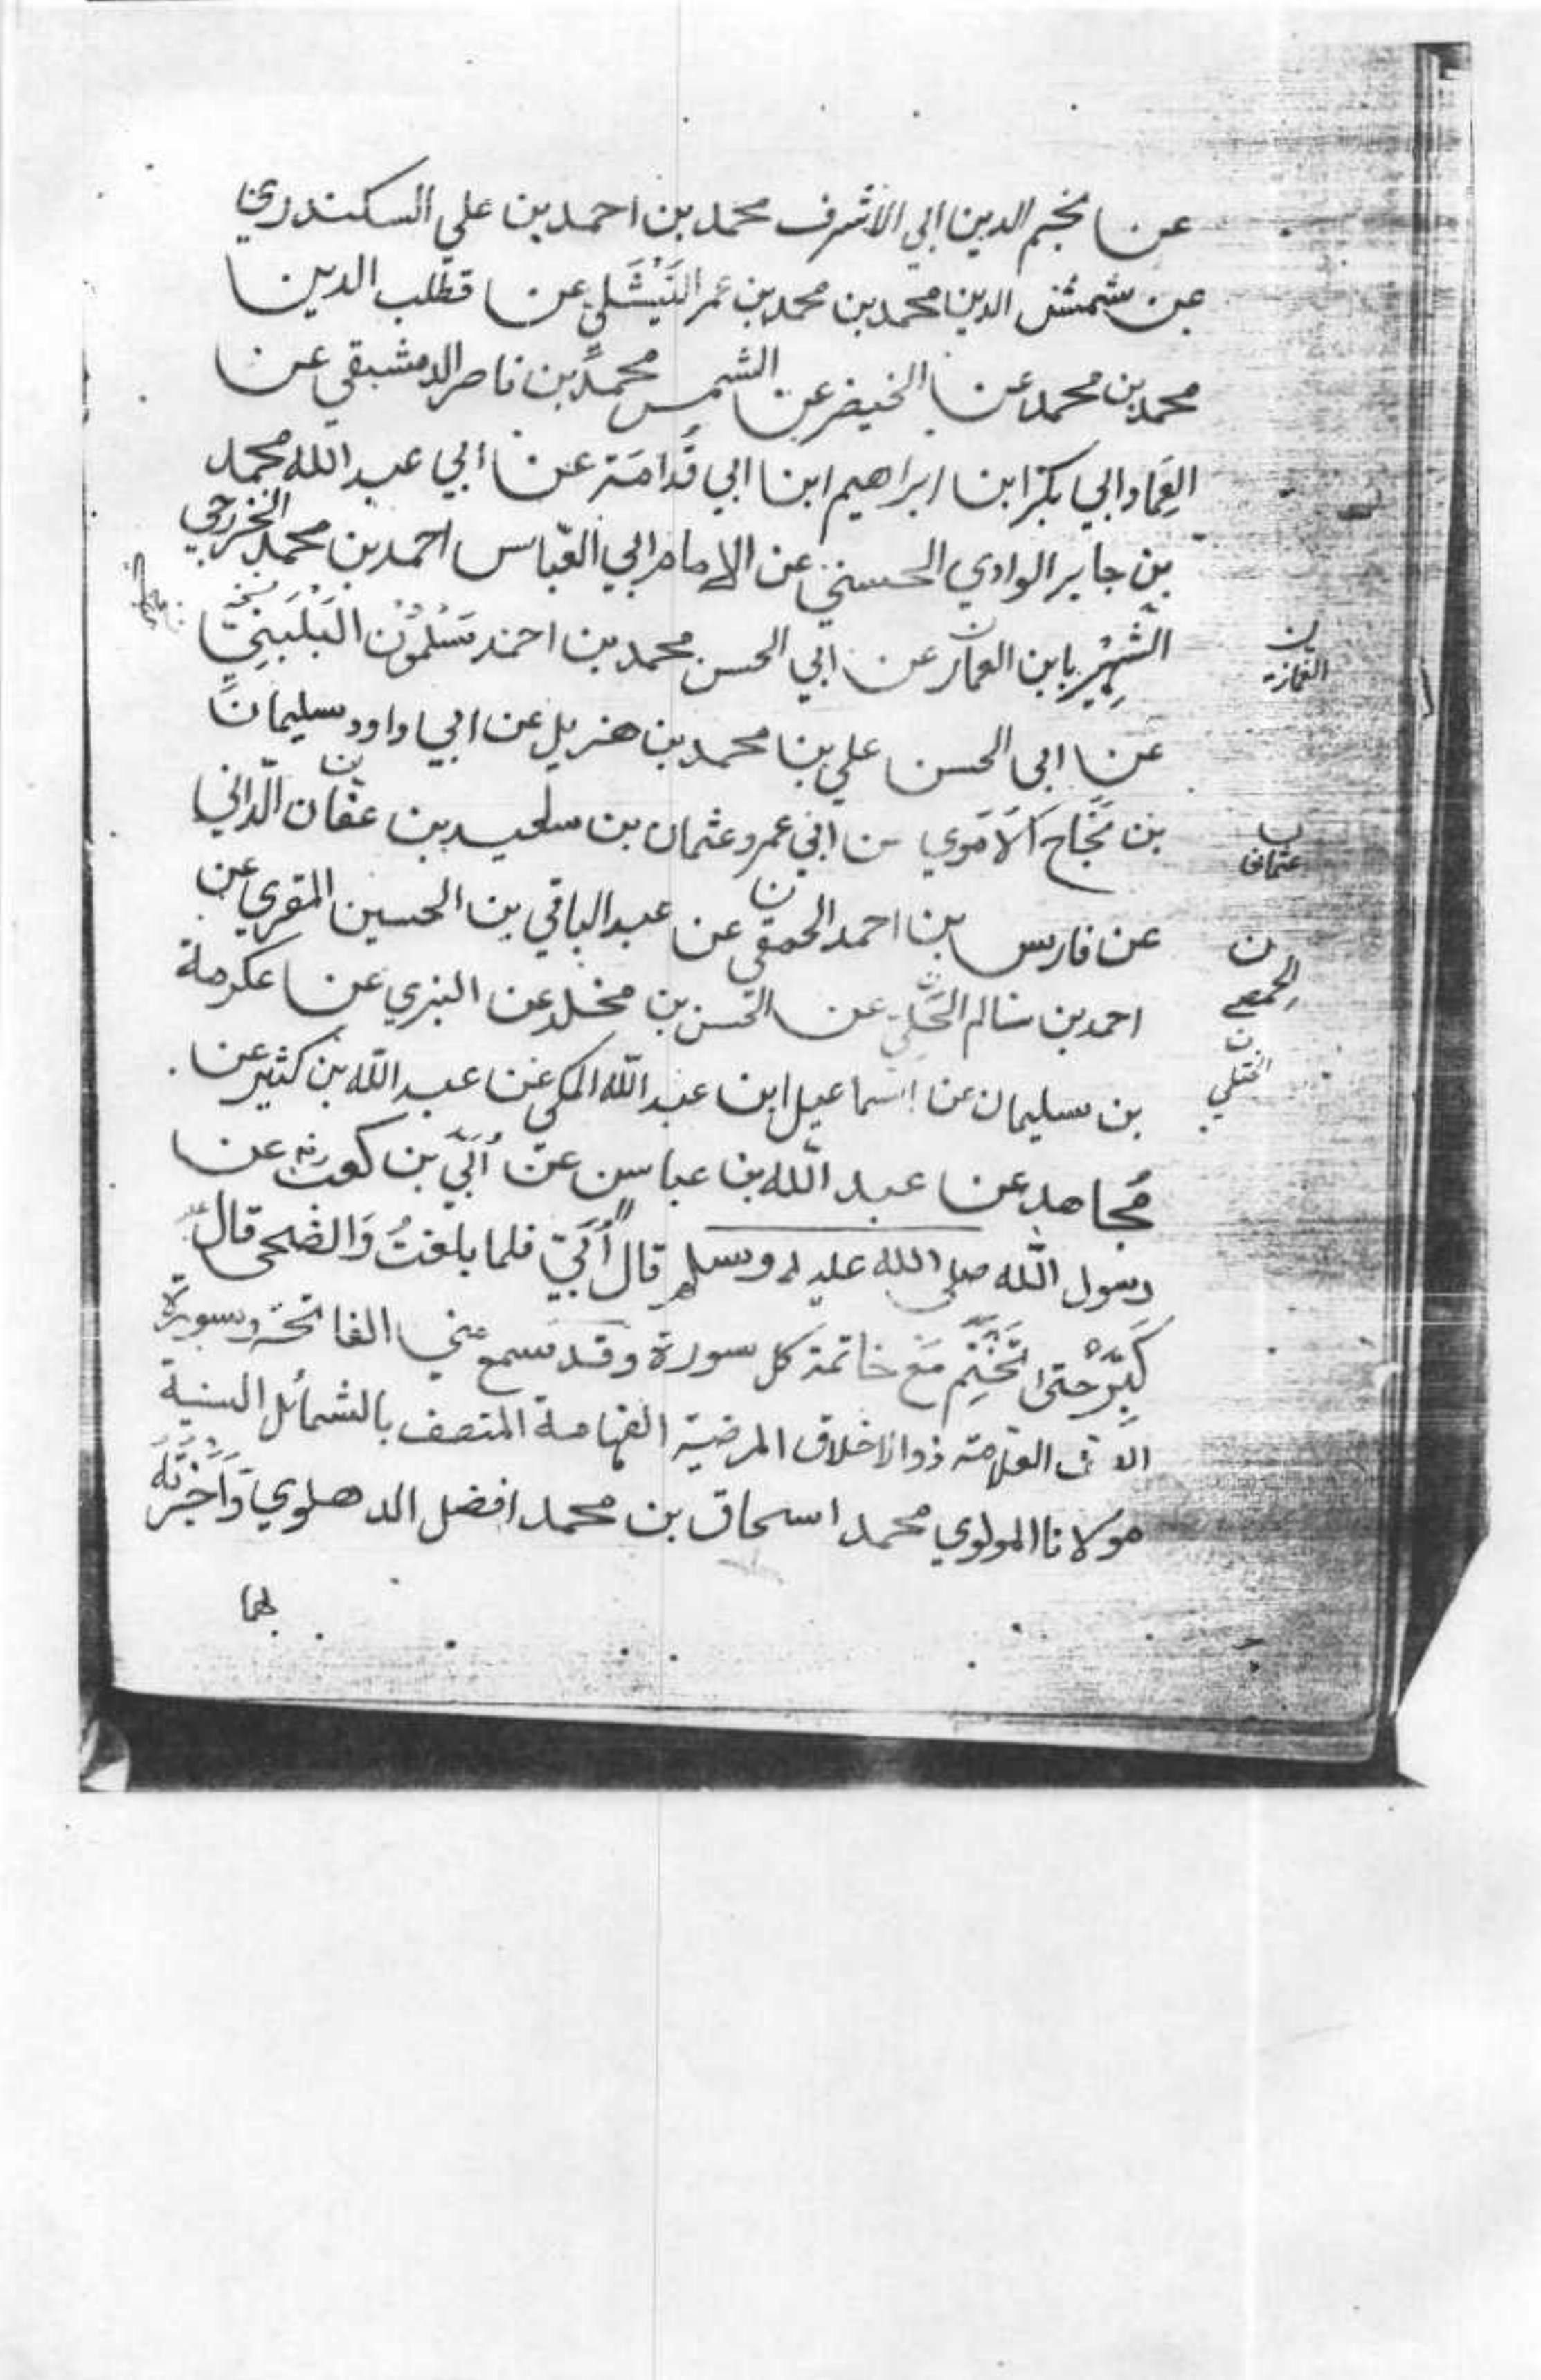 عن نجم الدين ابي الاشرف محمد بن احمد بن علي السكندري
عن شمس الدين محمد بن محمد بن عمر النَيْشَلي عن قطب الدين
محمد بن محمد عن الخيضر عن الشمس محمد بن ناصر الدمشيقي عن
العِمَاد ابي بكر ابن ابراهيم ابن ابي قُدامَة عن ابي عبد الله محمد
بن جابر الوادي الحسني عن الامام ابي العباس احمد بن محمد الخزرجي
الشَهِير بابن العمار عن ابي الحسن محمد بن احمد سَلْمُوْن البَلَبَنِي
عن ابي الحسن علي بن محمد بن هزيل عن ابي داود سليمان
بن نَجَاح الاَمَوي عن ابي عمرو عثمان بن سعيد بن عفان الداني
عن فارس بن احمد الحمقي عن عبد الباقي بن الحسين المقري عن
احمد بن سالم الخَتَلِي عن الحسن بن مخلد عن البزي عن عكرمة
بن سليمان عن اسماعيل ابن عبد الله المكي عن عبد الله بن كثير عن
مُجاهد عن عبد الله بن عباس عن اُبَيّ بن كعب رضه عن
رسول الله صلى الله عليه وسلم قال اُبَيّ فلما بلغتُ وَالضحى قال
كَبِّرْ حتى تَخْتِم مَعَ خاتمة كل سورة وقد سمع عني الفاتحة وسورة
العلامة ذو الاخلاق المرضية الفهامة المتصف بالشمائل السنية
مولانا المولوي محمد اسحاق بن محمد افضل الدهلوي وَاَجَزْتُهُ
بهما
ن
الغمازي
عثمان
ن
الحمصي
ن
الختلي